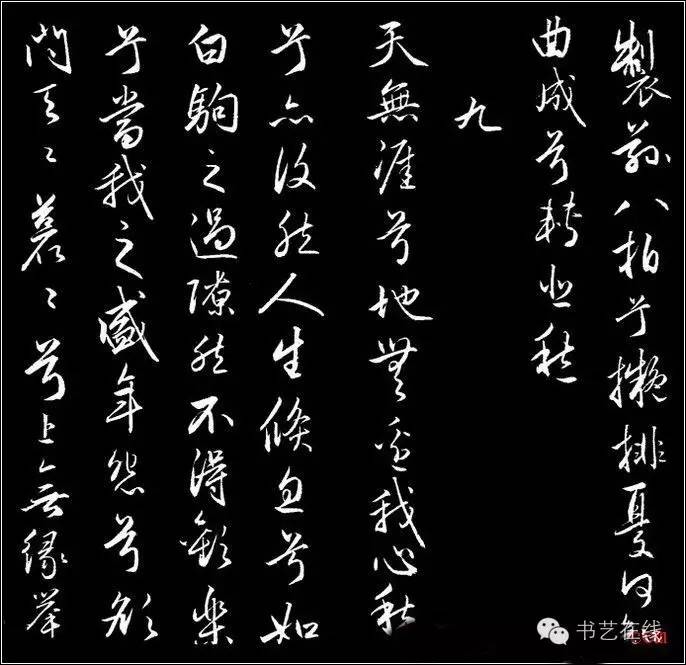 製茲八拍兮擬排憂何
曲成兮轉悲愁
九
天無涯兮地無邊我心愁
兮亦復然人生倏忽兮如
白駒之過隙然不得歡樂
兮當我之盛年怨兮欲
問天〻蒼〻兮上無緣舉
书艺在线